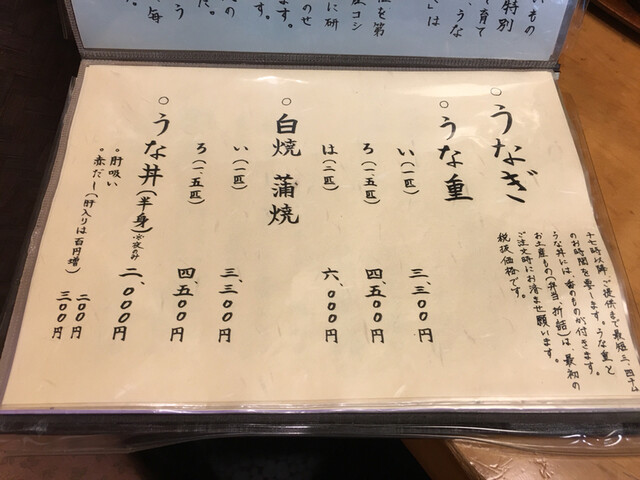 いもの
特別
て育て
、うな
」は
産を第
産コシ
に研
のせ
ます。
の
た。
う
毎
○うなぎ
十七時以降、ご提供まで最短三、四十分
のお時間を要します。うな重と
うな丼には、香のものが付きます。
お土産もの(弁当、折詰)は、最初の
ご注文時にお済ませ願います。
税抜価格です。
○うな重
い(一匹) 三、三〇〇円
ろ(一、五匹) 四、五〇〇円
は(二匹) 六、〇〇〇円
○白焼 蒲焼
い(一匹) 三、三〇〇円
ろ(一、五匹) 四、五〇〇円
○うな丼(半身) 二、〇〇〇円
。肝吸い 二〇〇円
。赤だし(肝入りは百円増) 三〇〇円